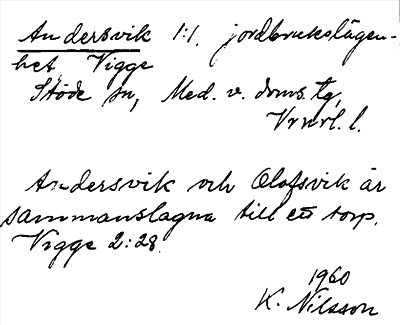 Andersvik 1:1. jordbrukslägen-
het, Vigge
Stöde sn, Med. v. doms. tg,
Vrnrl. l.
Andersvik och Olofsvik är
sammanslagna till ett torp.
Vigge 2:28.
1960
K. Nilsson